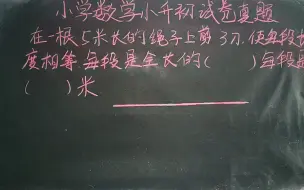 小学数学小升初试卷真题
在一根5米长的绳子上剪3刀.使每段长
度相等每段是全长的(  )每段是
(  )米